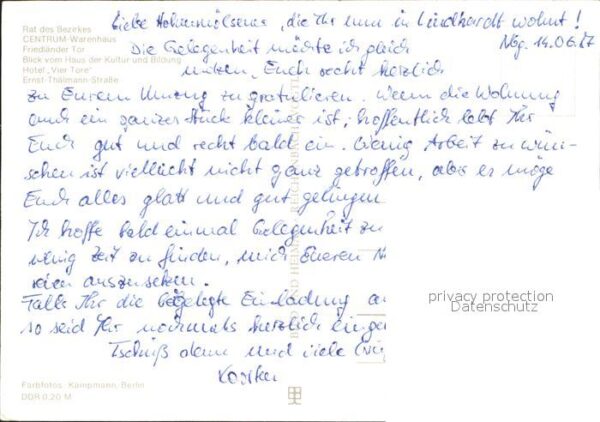 Rat des Bezirkes
CENTRUM-Warenhaus
Friedländer Tor
Blick vom Haus der Kultur und Bildung
Hotel „Vier Tore"
Ernst-Thälmann-Straße
Liebe Hohenmölsener, die Ihr nun in Lindhardt wohnt!
Nbg. 14.06.87
Die Gelegenheit möchte ich gleich
nutzen, Euch recht herzlich
zu Eurem Umzug zu gratulieren. Wenn die Wohnung
auch ein ganzes Stück kleiner ist, hoffentlich lebt Ihr
Euch gut und recht bald ein. Wenig Arbeit zu wün-
schen ist vielleicht nicht ganz getroffen, aber es möge
Euch alles glatt und gut gelingen
Ich hoffe bald einmal Gelegenheit zu
wenig Zeit zu finden, mich Eueren
auszusetzen.
Falls Ihr die Einladung
so seid Ihr nochmals herzlich
Tschüß denn und viele
BILD UND HEIMAT REICHENBACH
privacy protection
Datenschutz
Farbfotos: Kampmann, Berlin
DDR 0,20 M